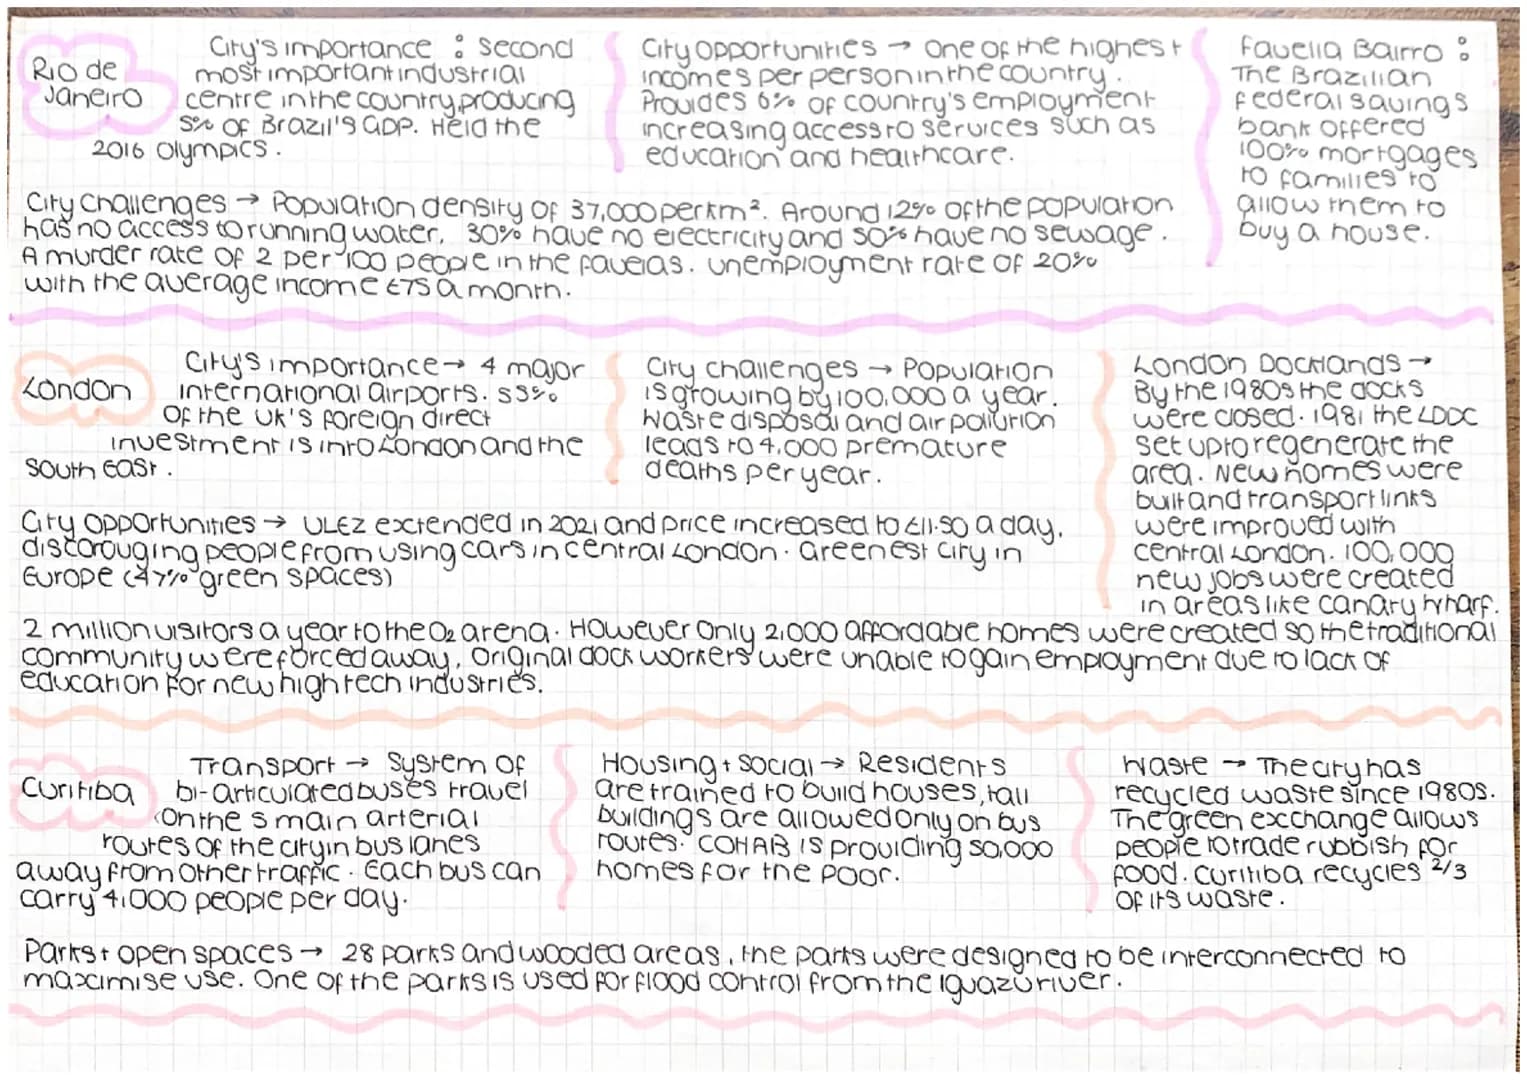 Rio de
Janeiro
City's importance : Second
most important industrial
centre in the country, producing
5% of Brazil's GDP. Held the
2016 Olympics.
City opportunities → One of the highest
incomes per person in the country.
Provides 6% of country's employment
increasing access to services such as
education and healthcare.
Favella Bairro :
The Brazilian
federal savings
bank offered
100% mortgages
to families to
allow them to
buy a house.
City challenges → Population density of 37,000 per km². Around 12% of the population
has no access to running water, 30% have no electricity and 50% have no sewage.
A murder rate of 2 per 100 people in the favelas. Unemployment rate of 20%
with the average income £75 a month.
London
City's importance → 4 major
international airports. 53%
of the UK's foreign direct
investment is into London and the
South East.
City challenges → Population
is growing by 100,000 a year.
Waste disposal and air pollution
leads to 4,000 premature
deaths per year.
London Docklands →
By the 1980s the docks
were closed. 1981 the LDDC
set up to regenerate the
area. New homes were
built and transport links
were improved with
central London. 100,000
new jobs were created
in areas like canary wharf.
City opportunities → ULEZ extended in 2021 and price increased to £11.50 a day,
discorouging people from using cars in central London. Greenest city in
Europe (47% green spaces)
2 million visitors a year to the O2 arena. However only 2,000 affordable homes were created so the traditional
community were forced away, original dock workers were unable to gain employment due to lack of
education for new high tech industries.
Curitiba
Transport → System of
bi-articulated buses travel
on the 5 main arterial
routes of the city in bus lanes
away from other traffic. Each bus can
carry 4,000 people per day.
Housing + Social → Residents
are trained to build houses, tall
buildings are allowed only on bus
routes. COHAB is providing 50,000
homes for the poor.
Waste → The city has
recycled waste since 1980s.
The green exchange allows
people to trade rubbish for
food. Curitiba recycles 2/3
of its waste.
Parks + open spaces → 28 parks and wooded areas, the parks were designed to be interconnected to
maximise use. One of the parks is used for flood control from the Iguazu river.